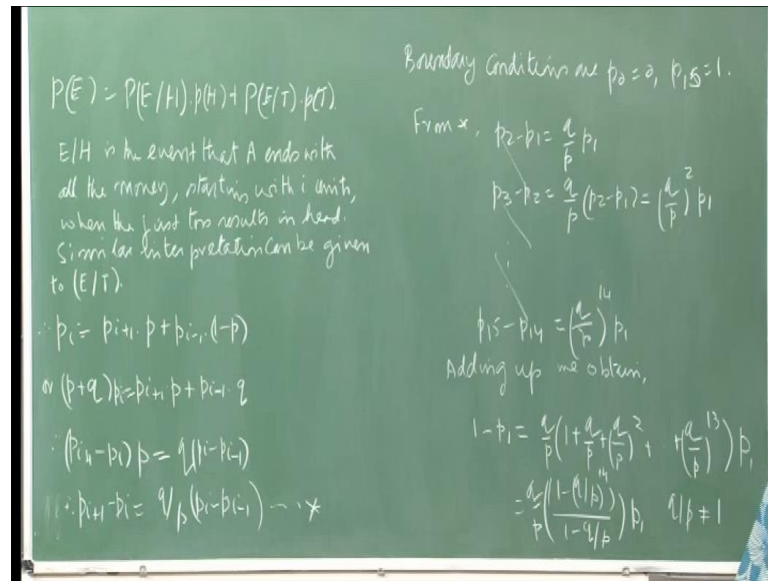 P(E) = P(E/H).p(H) + P(E/T).p(T).
E/H is the event that A ends with
all the money, starting with i units,
when the first toss results in head.
Similar interpretation can be given
to (E/T).
∴ pi = pi+1 . p + pi-1 . (1-p)
or (p+q)pi = pi+1 . p + pi-1 . q
∴ (pi+1 - pi) p = q(pi - pi-1)
∴ pi+1 - pi = q/p (pi - pi-1) ---*
Boundary Conditions are p0 = 0, p15 = 1.
From *, p2 - p1 = q/p p1
p3 - p2 = q/p (p2 - p1) = (q/p)^2 p1
p15 - p14 = (q/p)^14 p1
Adding up we obtain,
1 - p1 = q/p (1 + q/p + (q/p)^2 + .. + (q/p)^13) p1
= q/p ((1 - (q/p)^14)/(1 - q/p)) p1 q/p ≠ 1